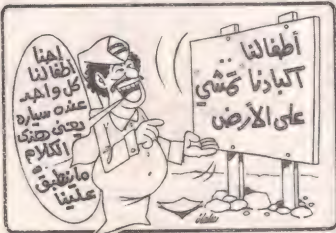 أطفالنا ..
اكبادنا تمشي
على الأرض
احنا
اطفالنا
كل واحد
عنده سياره
يعني هذي
الكلام
ماينطبق
علينا